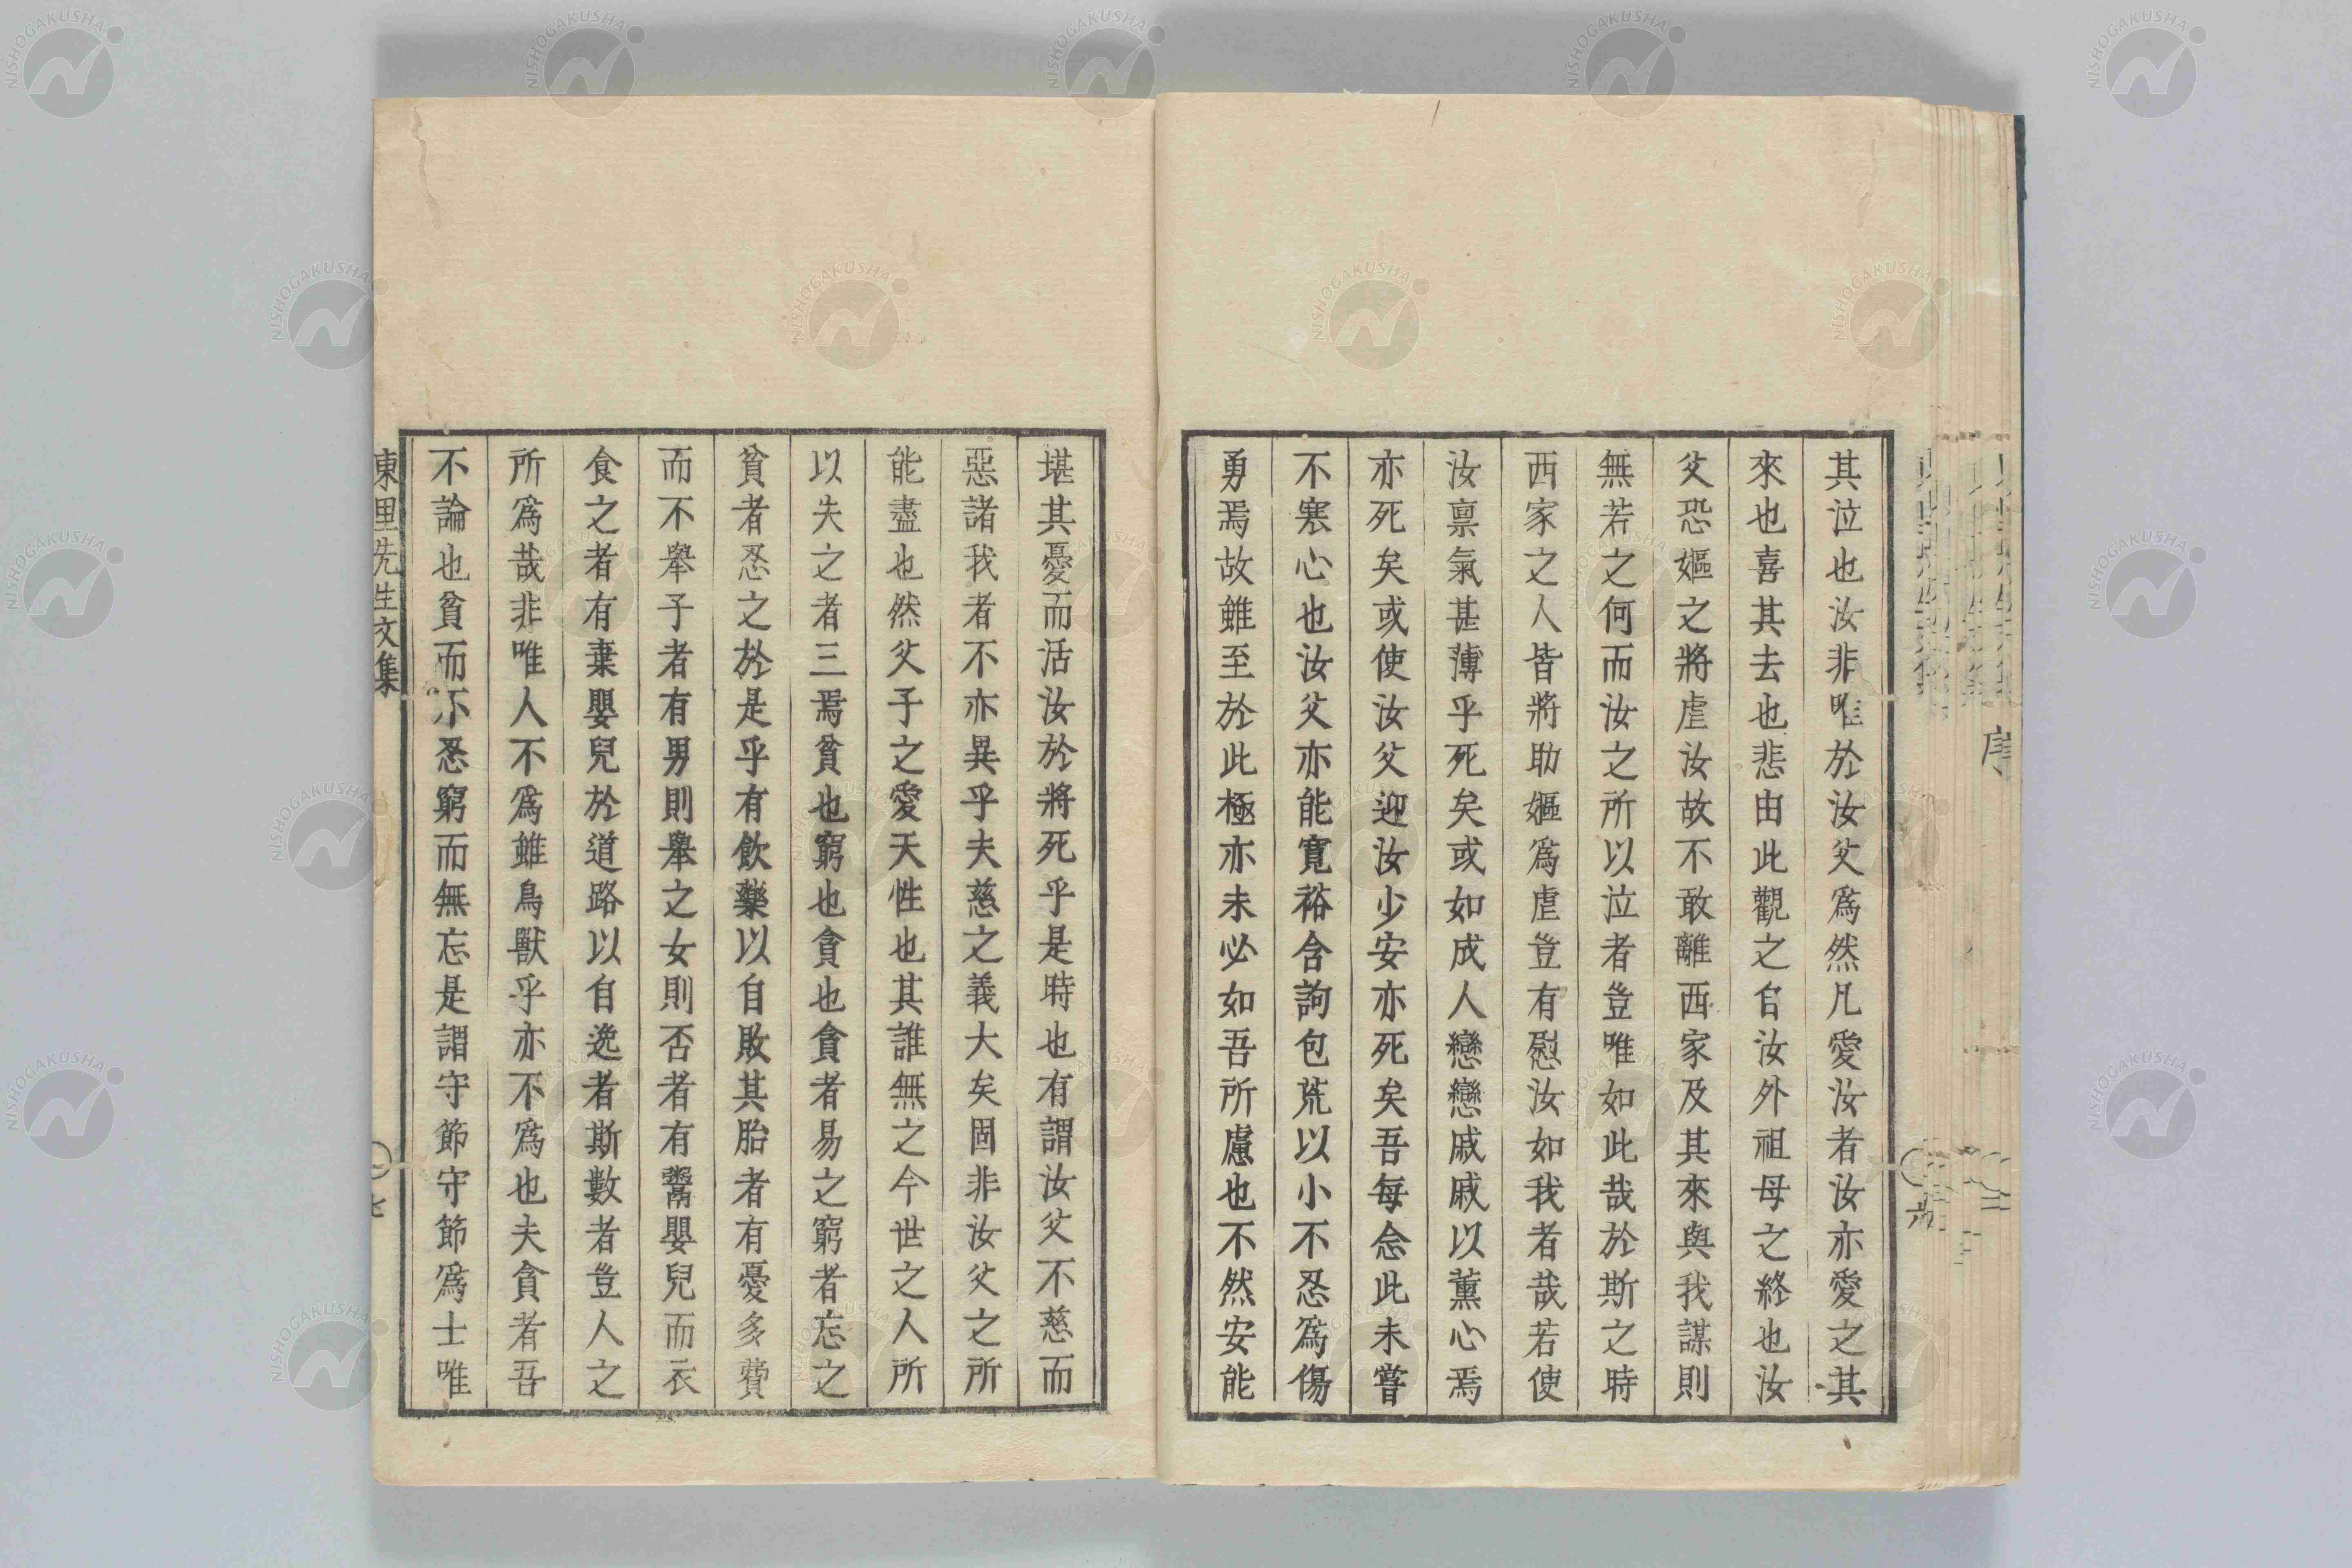 其泣也汝非唯於汝父爲然凡愛汝者汝亦愛之其
來也喜其去也悲由此觀之自汝外祖母之終也汝
父恐嫗之將虐汝故不敢離西家及其來與我謀則
無若之何而汝之所以泣者豈唯如此哉於斯之時
西家之人皆將助嫗爲虐豈有慰汝如我者哉若使
汝禀氣甚薄乎死矣或如成人戀戀戚戚以薰心焉
亦死矣或使汝父迎汝少安亦死矣吾每念此未嘗
不寒心也汝父亦能寬裕含詢包荒以小不忍爲傷
勇焉故雖至於此極亦未必如吾所慮也不然安能
堪其憂而活汝於將死乎是時也有謂汝父不慈而
惡諸我者不亦異乎夫慈之義大矣固非汝父之所
能盡也然父子之愛天性也其誰無之今世之人所
以失之者三焉貧也窮也貪也貪者易之窮者忘之
貧者忍之於是乎有飲藥以自敗其胎者有憂多費
而不舉子者有男則舉之女則否者有鬻嬰兒而衣
食之者有棄嬰兒於道路以自逸者斯數者豈人之
所爲哉非唯人不爲雖鳥獸乎亦不爲也夫貪者吾
不論也貧而不忍窮而無忘是謂守節守節爲士唯
東里先生文集
七
序
六
NISHOGAKUSHA